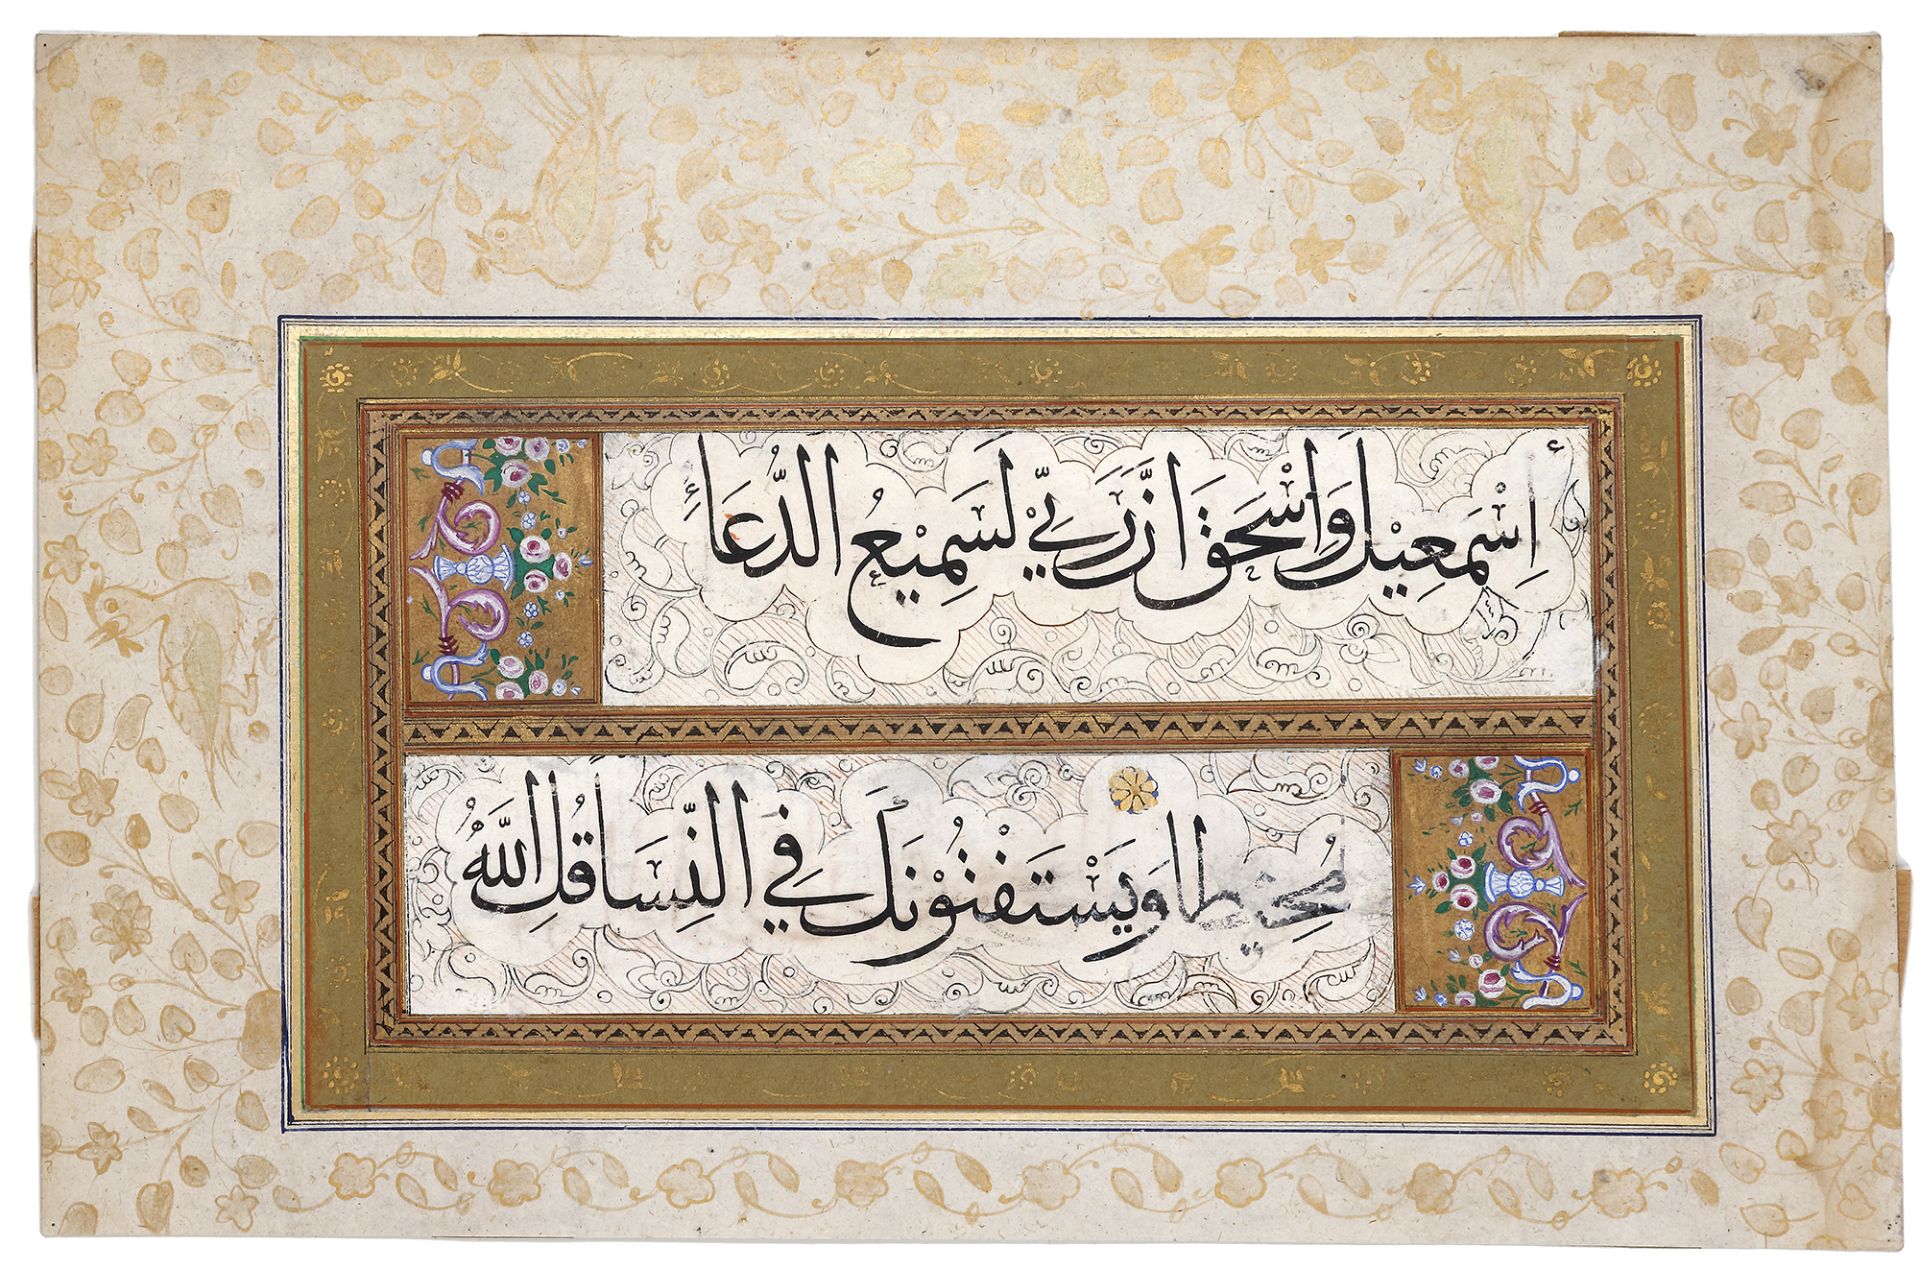 إِسْمَعِيْلَ وَاِسْحَقَ اِنَّ رَبِّيْ لَسَمِيْعُ الدُّعَاء
مُحِيْطا وَيَسْتَفْتُوْنَكَ فِي النِّسَا قُلِ اللَّهُ